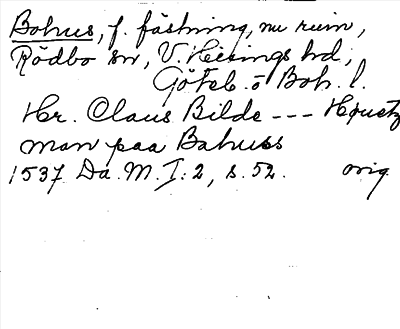 Bohus, f. fästning, nu ruin,
Rödbo sn, V. Hisings hd,
Göteb. o Boh. l.
Hr. Claus Bilde --- Höuetz
man paa Bahuss
1537 Da. M. I: 2, s. 52. orig.